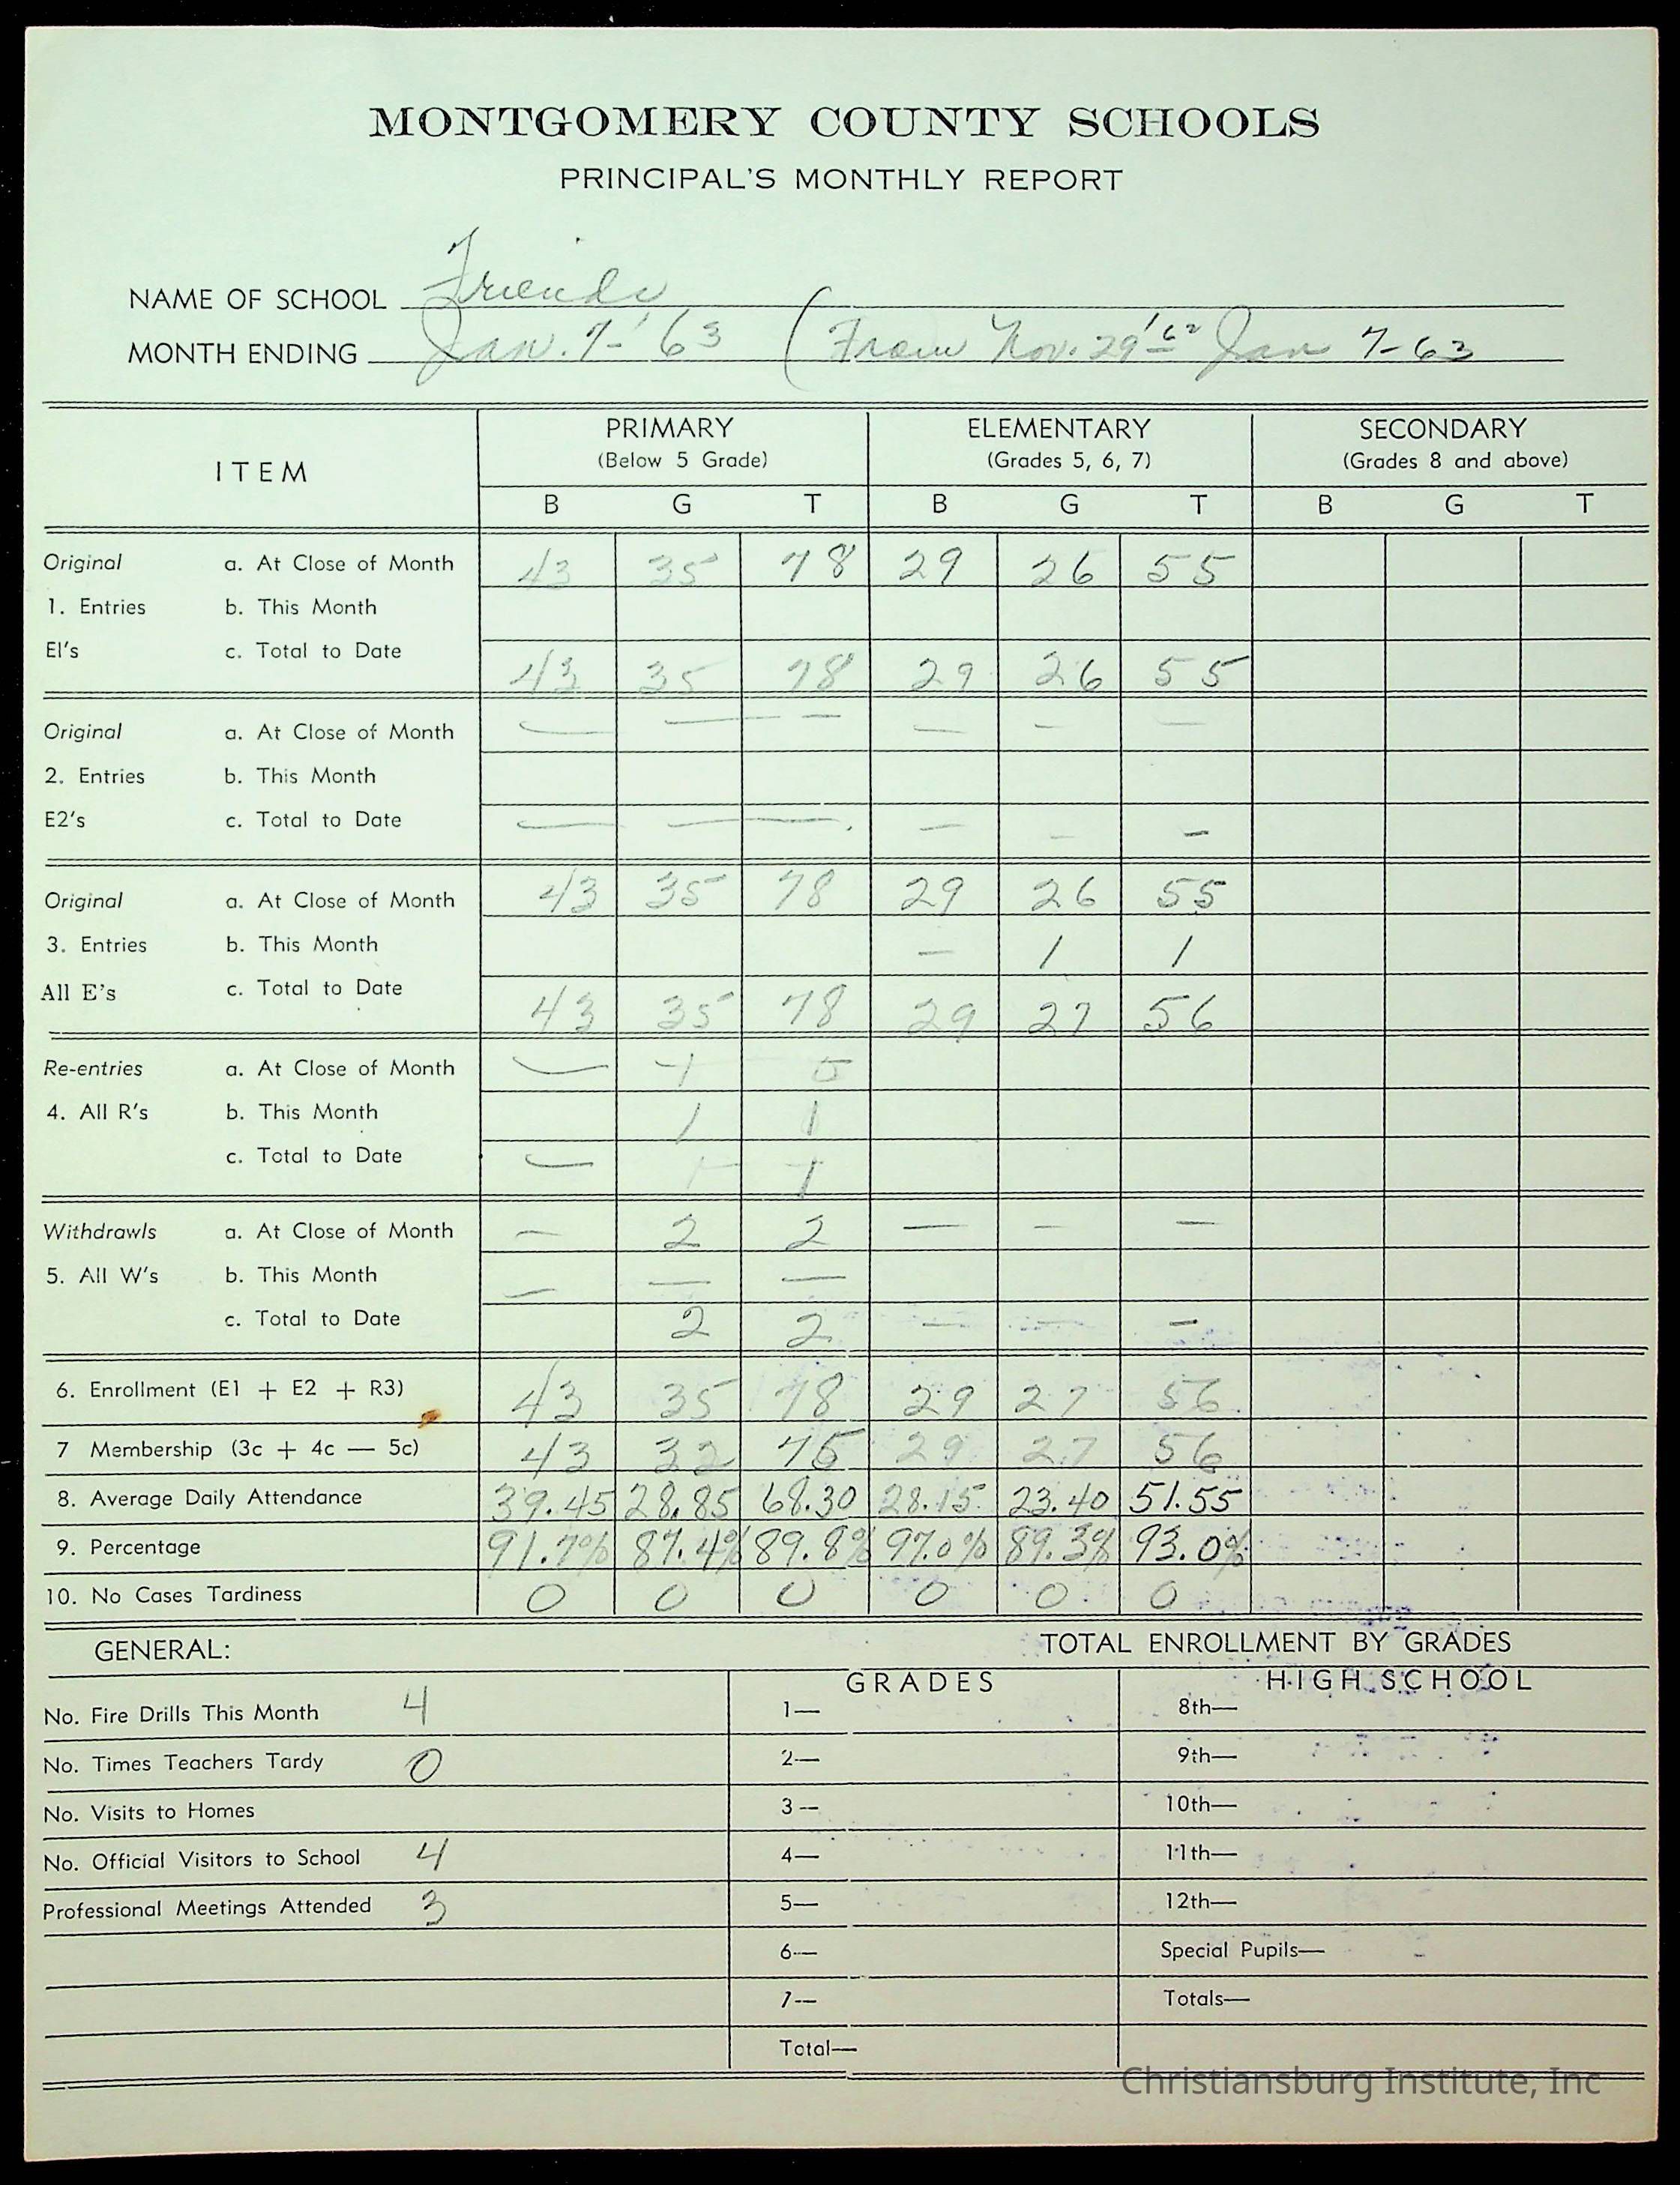 MONTGOMERY COUNTY SCHOOLS
PRINCIPAL'S MONTHLY REPORT
NAME OF SCHOOL Friends
MONTH ENDING Jan. 7-'63 (From Nov. 29'62 Jan 7-63
ITEM PRIMARY (Below 5 Grade) ELEMENTARY (Grades 5, 6, 7) SECONDARY (Grades 8 and above)
B G T B G T B G T
Original a. At Close of Month 43 35 78 29 26 55
1. Entries b. This Month
El's c. Total to Date 43 35 78 29 26 55
Original a. At Close of Month — — — — — —
2. Entries b. This Month
E2's c. Total to Date — — — — — —
Original a. At Close of Month 43 35 78 29 26 55
3. Entries b. This Month — 1 1
All E's c. Total to Date 43 35 78 29 27 56
Re-entries a. At Close of Month —
4. All R's b. This Month 1 1
c. Total to Date — 1 1
Withdrawls a. At Close of Month — 2 2 — — —
5. All W's b. This Month — — —
c. Total to Date 2 2 — — —
6. Enrollment (E1 + E2 + R3) 43 35 78 29 27 56
7 Membership (3c + 4c — 5c) 43 32 75 29 27 56
8. Average Daily Attendance 39.45 28.85 68.30 28.15 23.40 51.55
9. Percentage 91.7% 87.4% 89.8% 97.0% 89.3% 93.0%
10. No Cases Tardiness 0 0 0 0 0 0
GENERAL: TOTAL ENROLLMENT BY GRADES
GRADES HIGH SCHOOL
No. Fire Drills This Month 4 1— 8th—
No. Times Teachers Tardy 0 2— 9th—
No. Visits to Homes 3— 10th—
No. Official Visitors to School 4 4— 11th—
Professional Meetings Attended 3 5— 12th—
6— Special Pupils—
7— Totals—
Total—
Christiansburg Institute, Inc